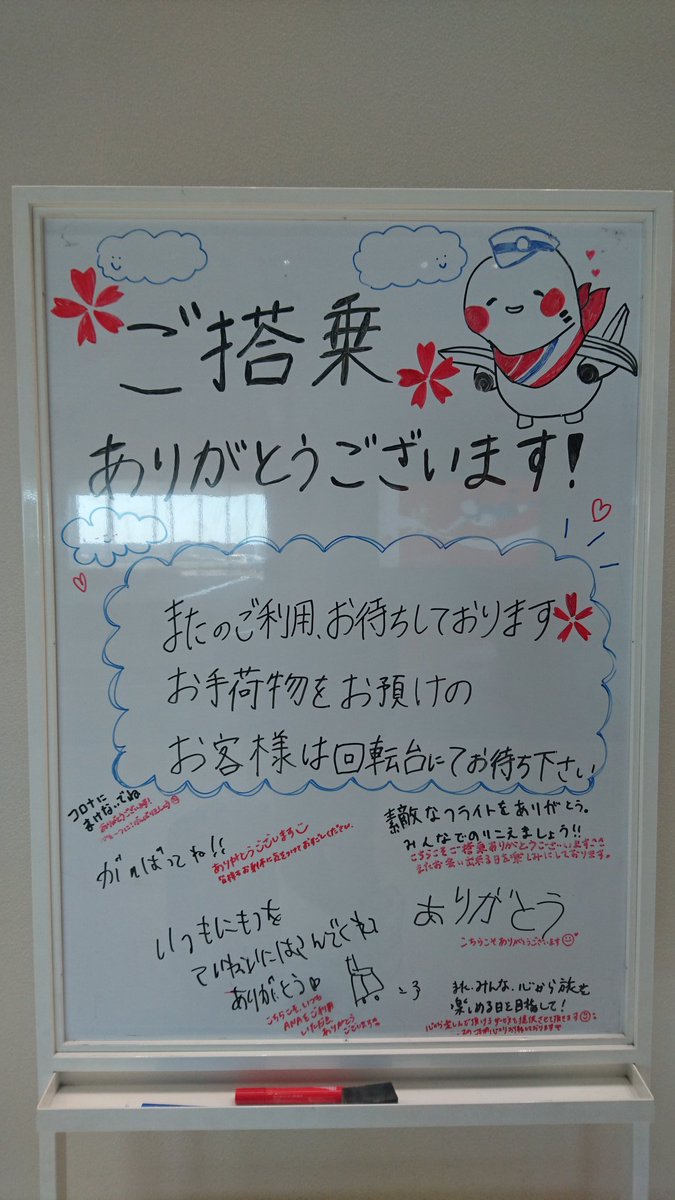 ご搭乗
ありがとうございます!
またのご利用、お待ちしております
お手荷物をお預けの
お客様は回転台にてお待ち下さい
コロナに
まけないでね
ありがとうございます!
がんばってね!!
ありがとうございます
皆様もお身体に気をつけてお過ごしください。
素敵なフライトをありがとう。
みんなでのりこえましょう!!
こちらこそご搭乗ありがとうございます
またお会い出来る日を楽しみにしております。
ありがとう
こちらこそありがとうございます
いつもにもつを
ていねいにはこんでくれて
ありがとう
こちらこそ、いつも
ANAをご利用
いただき
ありがとう
ございます
また、みんな、心から旅を
楽しめる日を目指して!